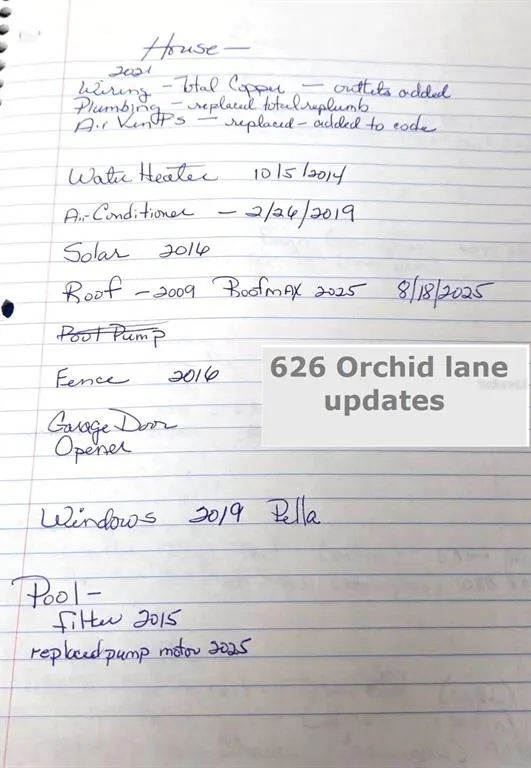 House—
2021
Wiring - Total Copper — outlets added
Plumbing — replaced total replumb
Air Vents — replaced - added to code
Water Heater 10/5/2014
Air-Conditioner — 2/26/2019
Solar 2016
Roof — 2009 RoofmAX 2025 8/18/2025
Pool Pump
626 Orchid lane
updates
Fence 2016
Garage Door
Opener
Windows 2019 Pella
Pool -
filter 2015
replaced pump motor 2025